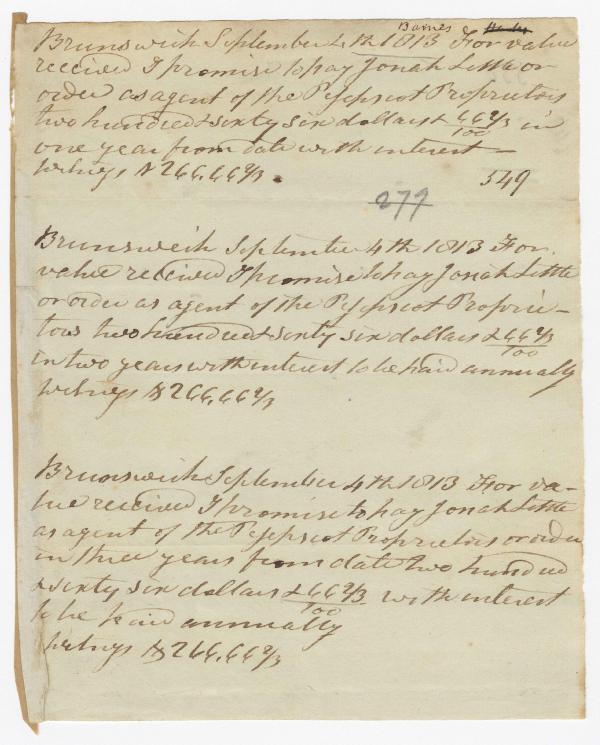 Barnes
Brunswick September 4th 1813 For value
received I promise to pay Josiah Little or
order as agent of the Pejepscot Proprietors
two hundred & sixty six dollars & 66 2/3/100 in
one year from date with interest —
$ 266,66 2/3. 549
277
Brunswick September 4th 1813 For
value received I promise to pay Josiah Little
or order as agent of the Pejepscot Proprie-
tors two hundred & sixty six dollars & 66 2/3/100
in two years with interest to be paid annually
$ 266,66 2/3
Brunswick September 4th 1813 For va-
lue received I promise to pay Josiah Little
as agent of the Pejepscot Proprietors or order
in three years from date two hundred
& sixty six dollars & 66 2/3/100 with interest
to be paid annually
$ 266,66 2/3